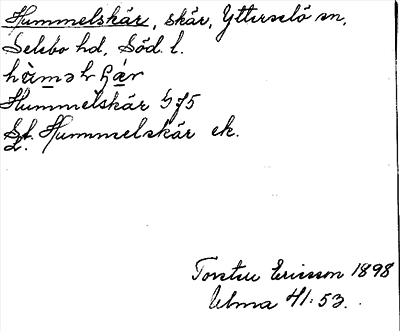 Hummelskär, skär, Ytterselö sn,
Selebo hd, Söd. l.
Hummelskär 575
St. Hummelskär ek.
L.
Torsten Ericsson 1898
Ulma 41:53.